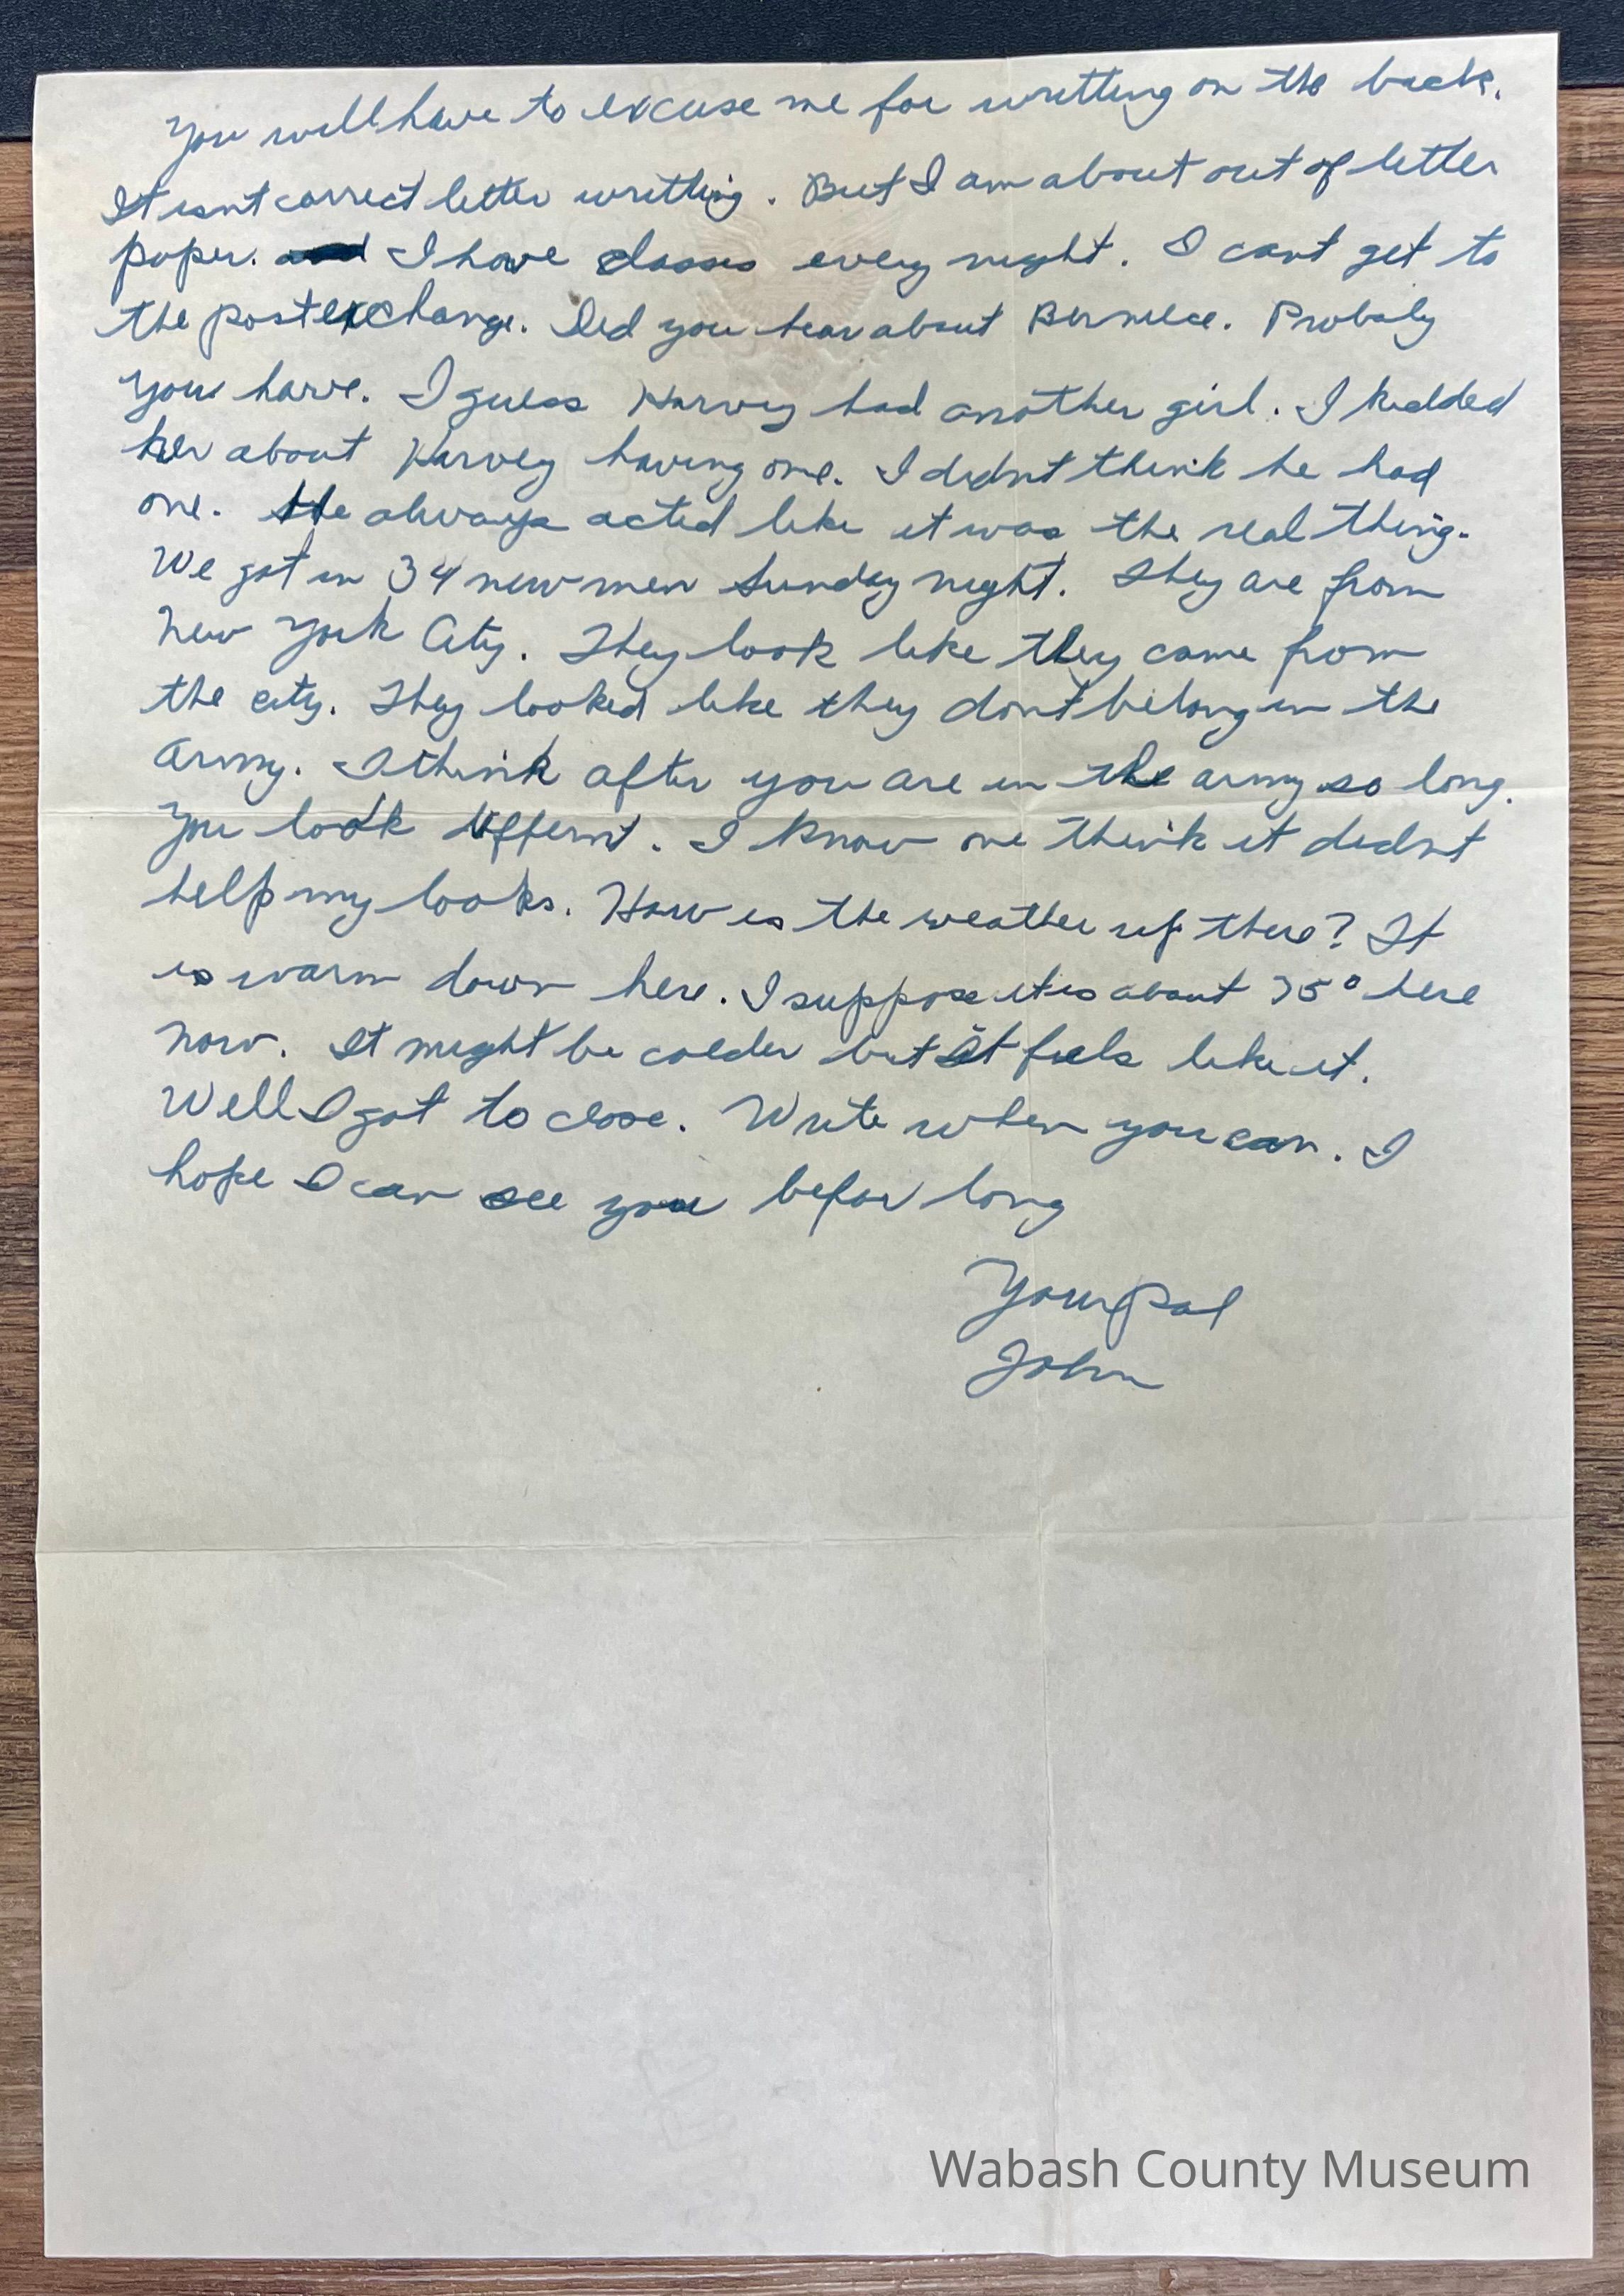 You will have to excuse me for writting on the back.
It isnt correct letter writting. But I am about out of letter
paper. I have classes every night. I cant get to
the postexchange. Did you hear about Berniece. Probaly
you have. I guess Harvey had another girl. I kidded
her about Harvey having one. I didnt think he had
one. He always acted like it was the real thing.
We got in 34 new men Sunday night. They are from
New York City. They look like they came from
the city. They looked like they dont belong in the
army. I think after you are in the army so long.
You look differnt. I know one think it didnt
help my looks. How is the weather up there? It
is warm down here. I suppose it is about 75° here
now. It might be colder but it feels like it.
Well I got to close. Write when you can. I
hope I can see you befor long
Your Pal
John
Wabash County Museum